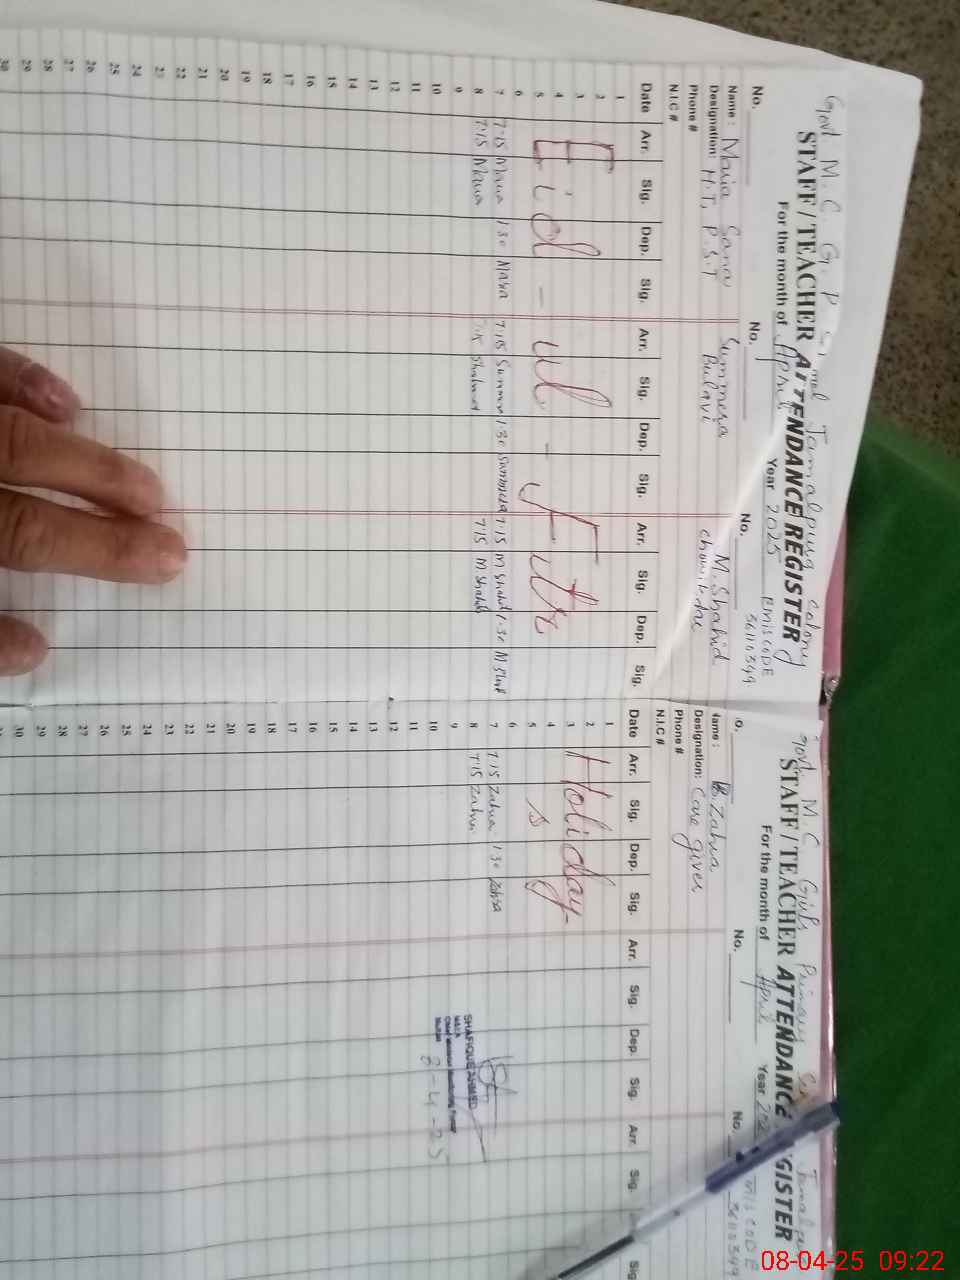 Govt M. C G. P S Jamalpura Colony
STAFF / TEACHER ATTENDANCE REGISTER
For the month of April Year 2025 Emis CODE
36110349
No. No. No.
Name : Maria Sana Summera M. Shahid
Designation: H.T, P.S.T Bulavi
Phone #
N.I.C #
Date Arr. Sig. Dep. Sig. Arr. Sig. Dep. Sig. Arr. Sig. Dep. Sig.
1
2
3
4
5
6
Eid - ul - Fitr
7 7:15 Maria 1:30 Maria 7:15 Summera 1:30 Summera 7:15 M Shahid 1:30 M Shahid
8 7:15 Maria 7:15 Shahid 7:15 M Shahid
9
10
11
12
13
14
15
16
17
18
19
20
21
22
23
24
25
26
27
28
29
30
Govt M. C Girls Primary
STAFF / TEACHER ATTENDANCE REGISTER
For the month of April Year 202
EMIS CODE
36110349
No. No.
Name : B. Zahra
Designation: Care giver
Phone #
N.I.C #
Date Arr. Sig. Dep. Sig. Arr. Sig. Dep. Sig. Arr. Sig. Sig
1
2
3
4
5
6
Holiday
s
7 7:15 Zahra 1:30 Zahra
8 7:15 Zahra
9
10
11
12
13
14
15
16
17
18
19
20
21
22
23
24
25
26
27
28
29
30
SHAFIQUE AHMED
M.E.A
Chief Minister Monitoring Force
Multan
8-4-25
08-04-25 09:22